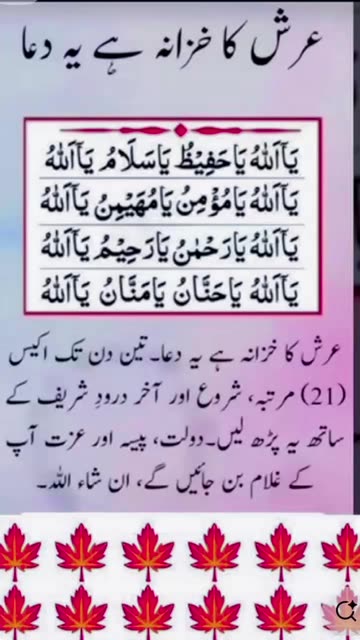 عرش کا خزانہ ہے یہ دعا
یَآاَللهُ یَاحَفِیْظُ یَاسَلَامُ یَآاَللهُ
یَآاَللهُ یَامُؤْمِنُ یَامُھَیْمِنُ یَآاَللهُ
یَآاَللهُ یَارَحْمٰنُ یَارَحِیْمُ یَآاَللهُ
یَآاَللهُ یَاحَنَّانُ یَامَنَّانُ یَآاَللهُ
عرش کا خزانہ ہے یہ دعا۔ تین دن تک اکیس
(21) مرتبہ، شروع اور آخر درودِ شریف کے
ساتھ یہ پڑھ لیں۔ دولت، پیسہ اور عزت آپ
کے غلام بن جائیں گے، ان شاء اللہ۔